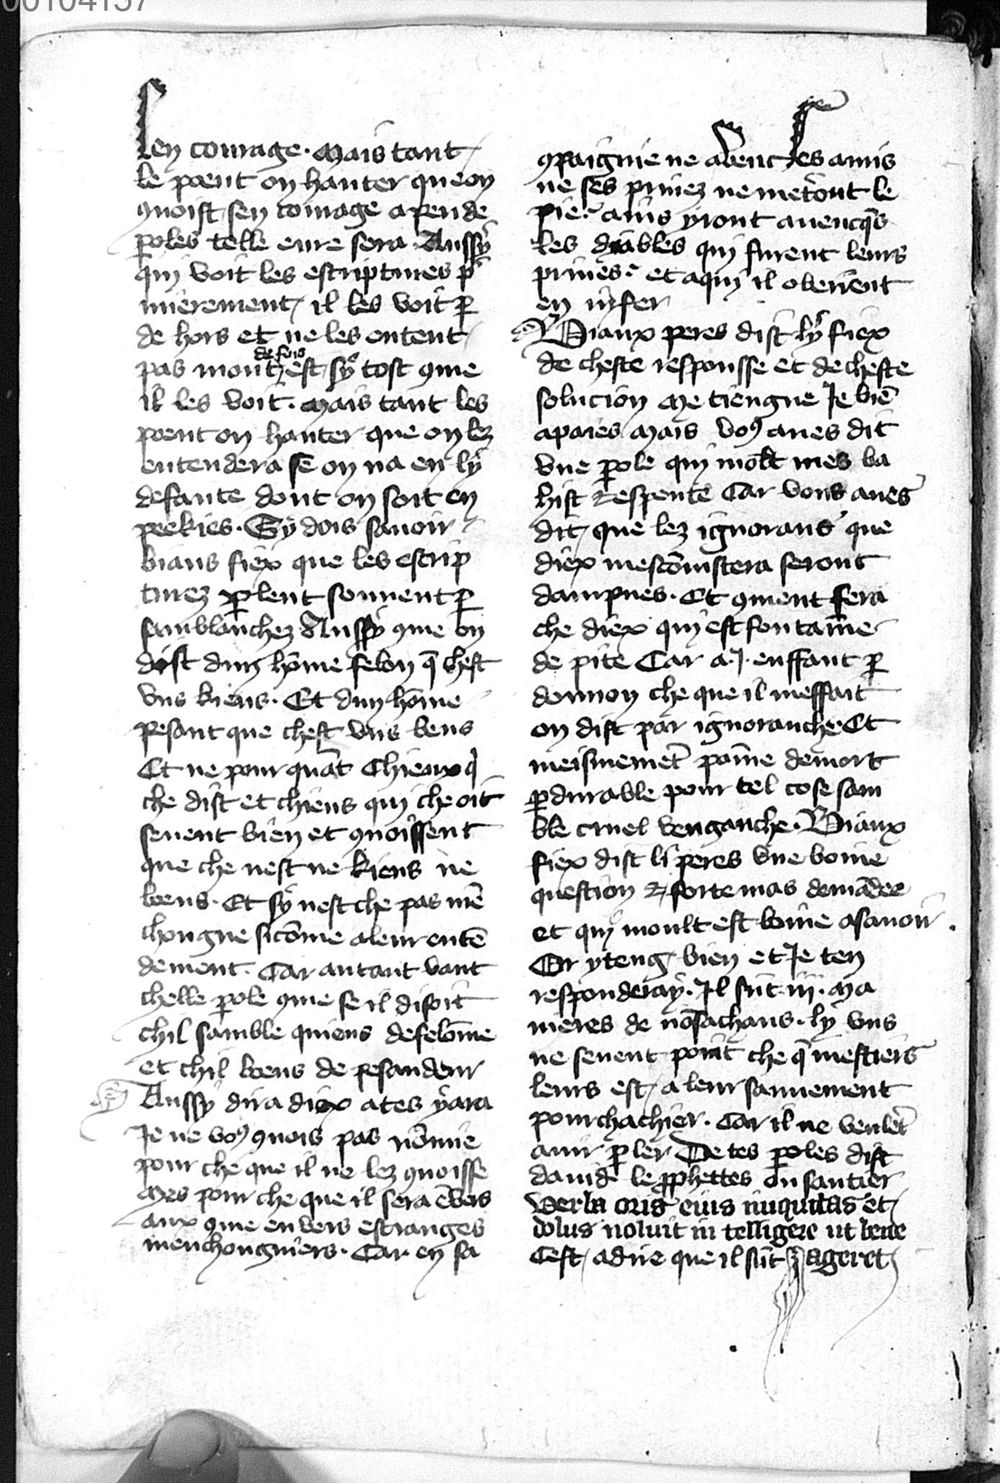 00104157
sen courage. Mais tant
le poent on hanter que on
9noist sen courage apende
ꝑoles telle eure sera. Aussy
qui voit les escriptures pͥ
mierement / il les voit ꝑ
de hors et ne les entent
pas mont de fois est sy tost 9me
il les voit. Mais tant les
poent on hanter que on lez
entendera se on na en ly
defaute dont on soit en
peekies. Sy dois sauoir
biaus fiex que les escrip
turez ꝑlent souuent ꝑ
samblanchez Aussy 9me on
dist dun hōme felon q̄ chest
vns kiens. Et dun hōme
pesant que chest vns bens
Et ne pour quāt Chieux qͥ
che dist et chiens qui che oit
seuent bien et 9noissent
que che nest ne kiens ne
boens. Et sy nest che pas mē
chongne sicōme a leur entē
dement. Car autant vaut
chelle ꝑole 9me se il disoit
chil samble quiens de felōnie
et chil boens de pesandeur
Aussy dira diex a tes yara
Je ne voꝰ 9nois pas nōmie
pour che que il ne lez 9noisse
Mes pour che que il sera ēvers
aux 9me en vers estranges
menchongniers. Car en sa
9paignie ne abenc les amis
ne ses priuez ne metōnt le
pie. ains yront auencqs
les diables qui furent leurs
priues. et a qui il obeirent
en infer
Biaux peres dist ly fiex
de cheste responsse et de cheste
solucion me tiengne Je biē
apaies Mais voꝰ aues dit
vne ꝑole qui molt mes ba
hist ⁊ espente Car vous aues
dit / que lez ignorans que
diex mescōnistera seront
dampnes. Et 9ment fera
che diex qui est fontaine
de pite Car a .j. enffant ꝑ
donnon che que il meffait
on dist par ignoranche. Et
meismemēt paine de mort
ꝑdurable pour tel cose sam
ble cruel venganche. Biaux
fiex dist li peres vne boine
question ⁊ forte mas demādee
et qui moult est boine a sauoir.
Or yteng bien et Je ten
responderay. Il sūt .iij. ma
nieres de nōsachans. ly vns
ne seuent point che q̄ mestiers
leurs est / a leur sauuement
pourchachier. Car il ne veulēt
auir ꝑler De tes ꝑoles dist
dauid le ꝓphettes ou santier
Verba oris eius iniquitas et
dolus noluit in telligere ut bene
Cest / a dire que il sūt ageret